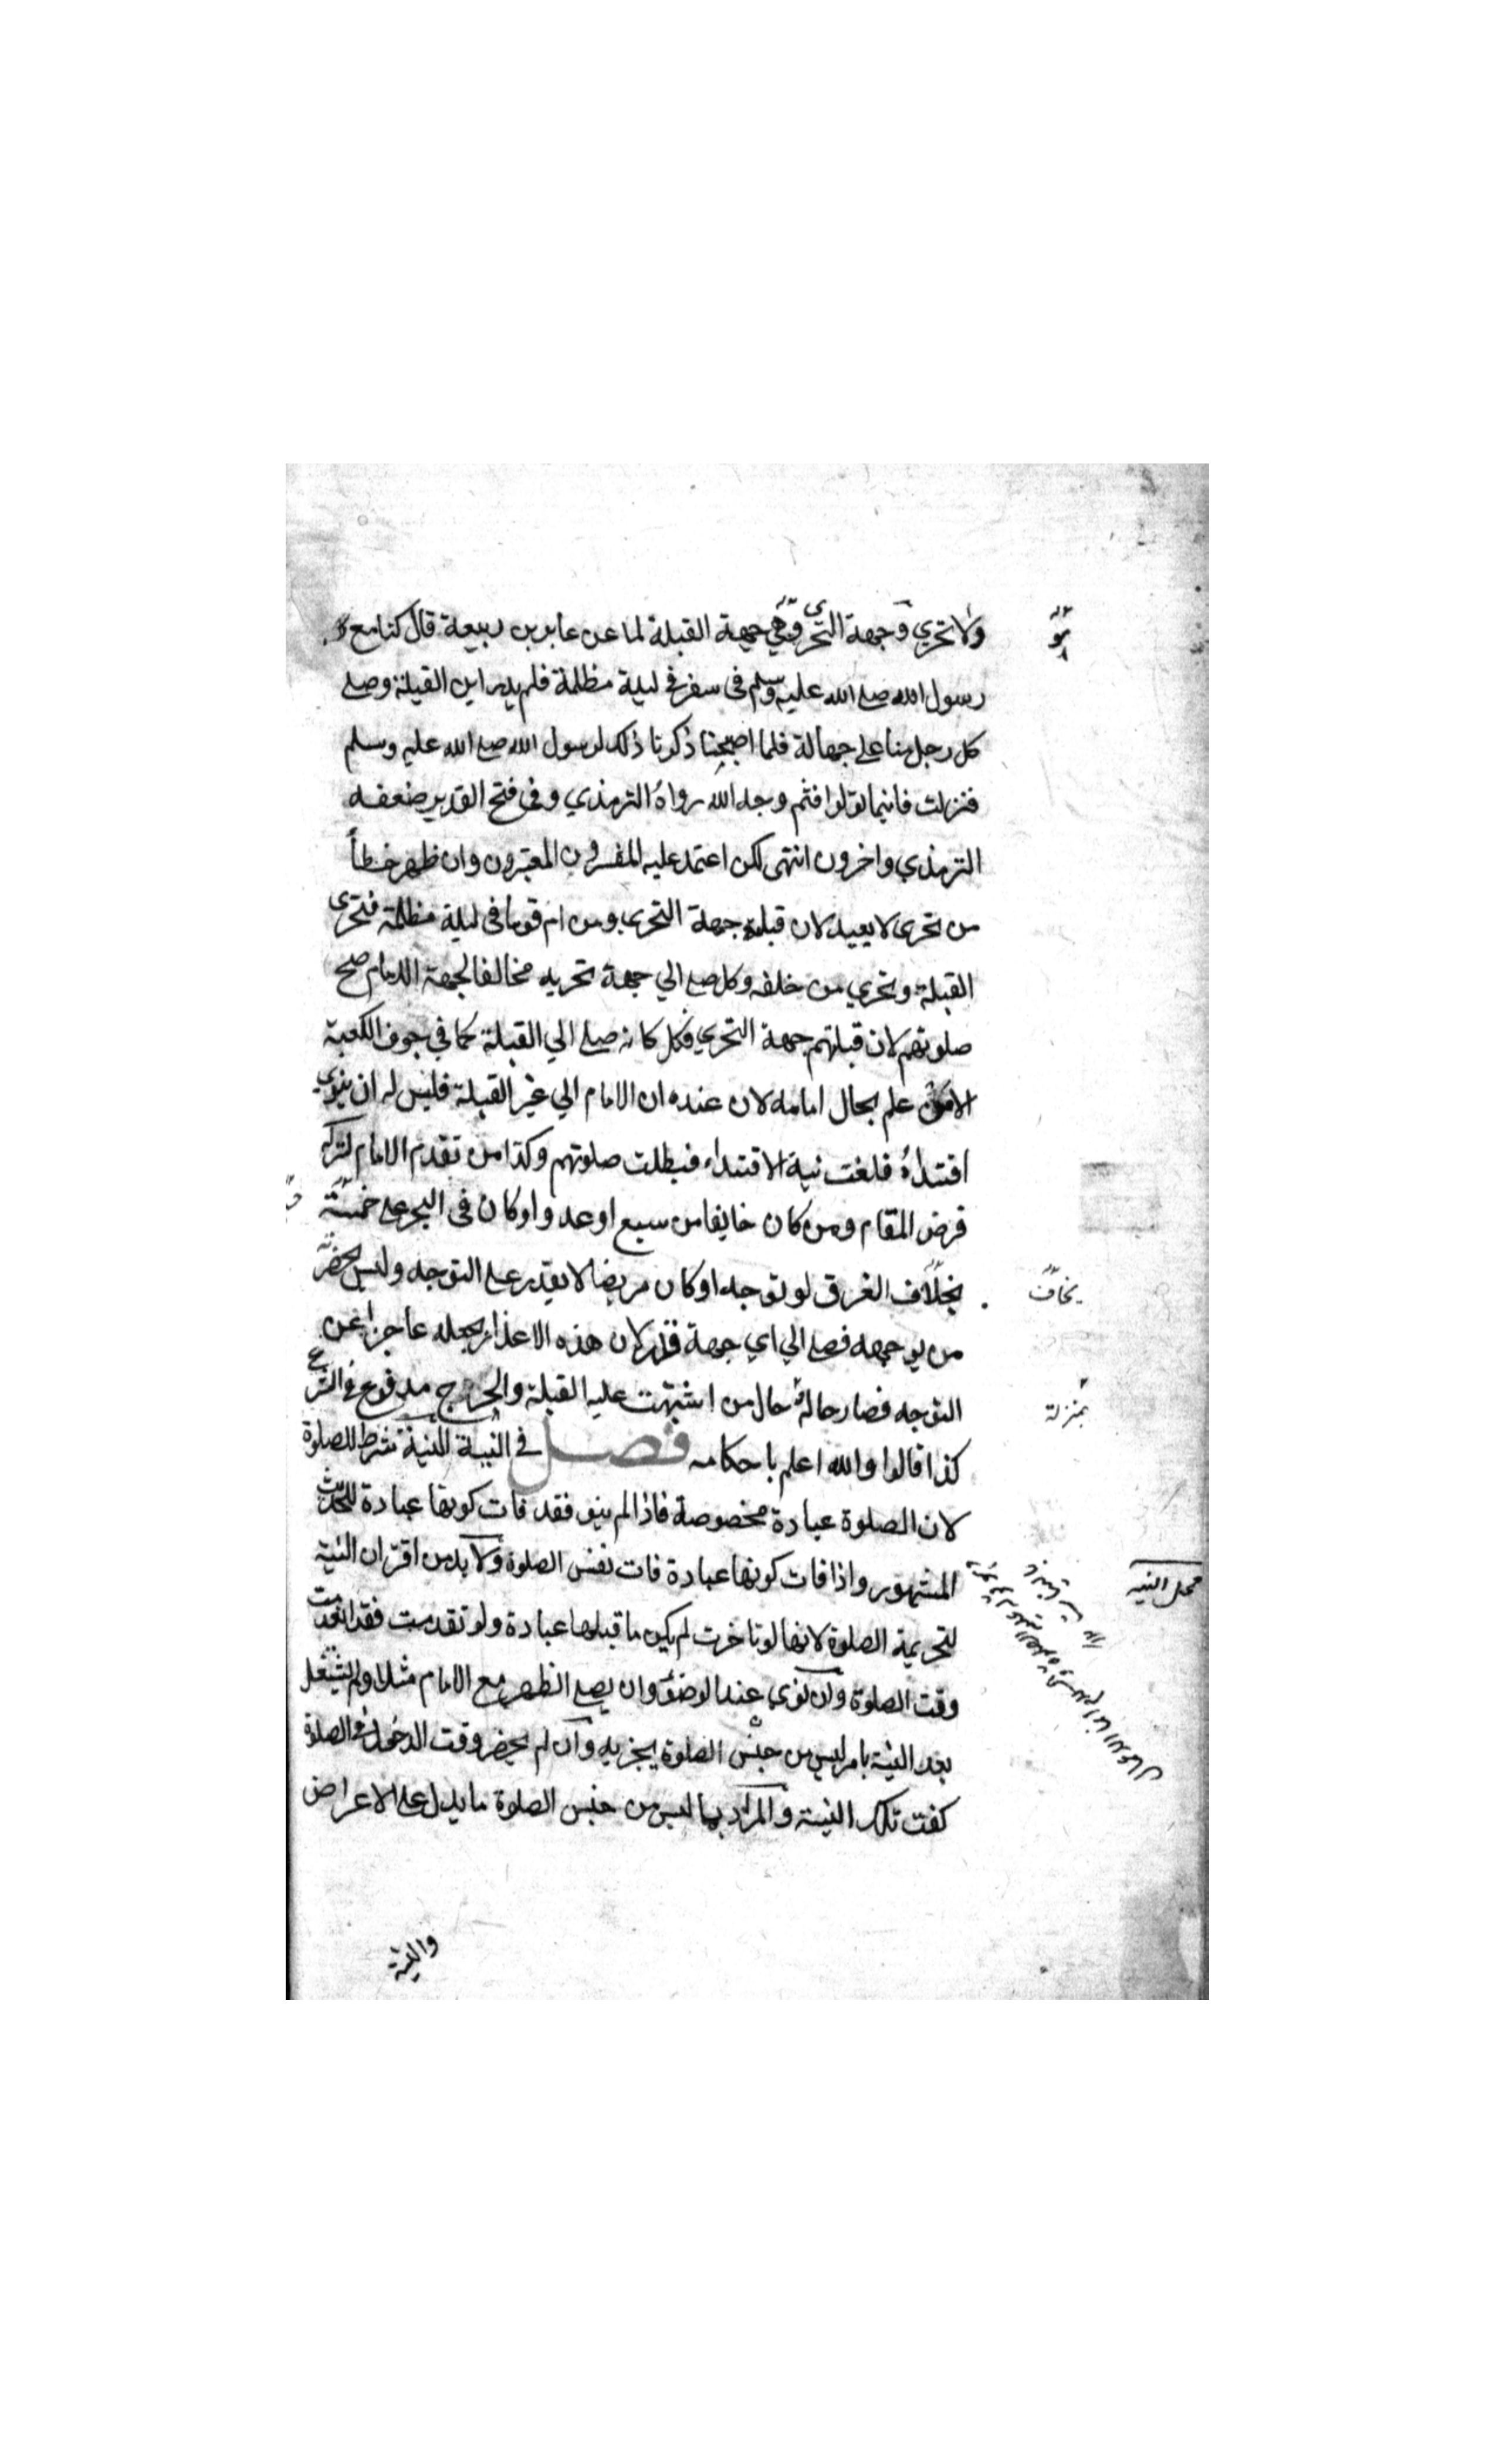 ولا تحري وجهة التحري هي جهة القبلة لما عن عامر بن ربيعة قال كنا مع
رسول الله صلي الله عليه وسلم في سفر في ليلة مظلمة فلم يدر اين القبلة وصلي
كل رجل منا علي جهالة فلما اصبحنا ذكرنا ذلك لرسول الله صلي الله عليه وسلم
فنزلت فاينما تولوا فثم وجه الله رواه الترمذي وفي فتح القدير ضعفه
الترمذي واخرون انتهى لكن اعتمد عليه المفسرون المعتبرون وان ظهر خطأ
من تحرى لا يعيد لان قبلته جهة التحري ومن ام قوما في ليلة مظلمة فتحرى
القبلة وتحري من خلفه وكل صلي الي جهة تحريه مخالفا لجهة الامام صح
صلوتهم لان قبلتهم جهة التحري فكل كانه صلي الي القبلة كما في جوف الكعبة
الا من علم بحال امامه لان عنده ان الامام الي غير القبلة فليس له ان ينوي
اقتداؤه فلغت نية الاقتداء فبطلت صلوتهم وكذا من تقدم الامام لتركه
فرض المقام ومن كان خايفا من سبع او عدو او كان في البحر علي خشبة
بخلاف الغرق لو توجه او كان مريضا لا يقدر علي التوجه وليس بحضرته
يخاف
من يوجهه فصلي الي اي جهة قدر لان هذه الاعذار يجعله عاجزا عن
التوجه فصار حاله حال من اشتبهت عليه القبلة والحرج مدفوع في الشرع
بمنزلة
كذا قالوا والله اعلم باحكامه فصل في النية النية شرط للصلوة
لان الصلوة عبادة مخصوصة فاذا لم ينو فقد فات كونها عبادة للحديث
المشهور واذا فات كونها عبادة فات نفس الصلوة ولا بد من اقتران النية
محل النيه
لتحريمة الصلوة لانها لو تاخرت لم يكن ما قبلها عبادة ولو تقدمت فقد انعدمت
وقت الصلوة وان نوى عند الوضوء ان يصلي الظهر مع الامام مثلا ولم يشتغل
بعد النية بامر ليس من جنس الصلوة يجزيه وان لم يحضر وقت الدخول في الصلوة
كفت تلك النية والمراد بما ليس من جنس الصلوة ما يدل علي الاعراض
والنية